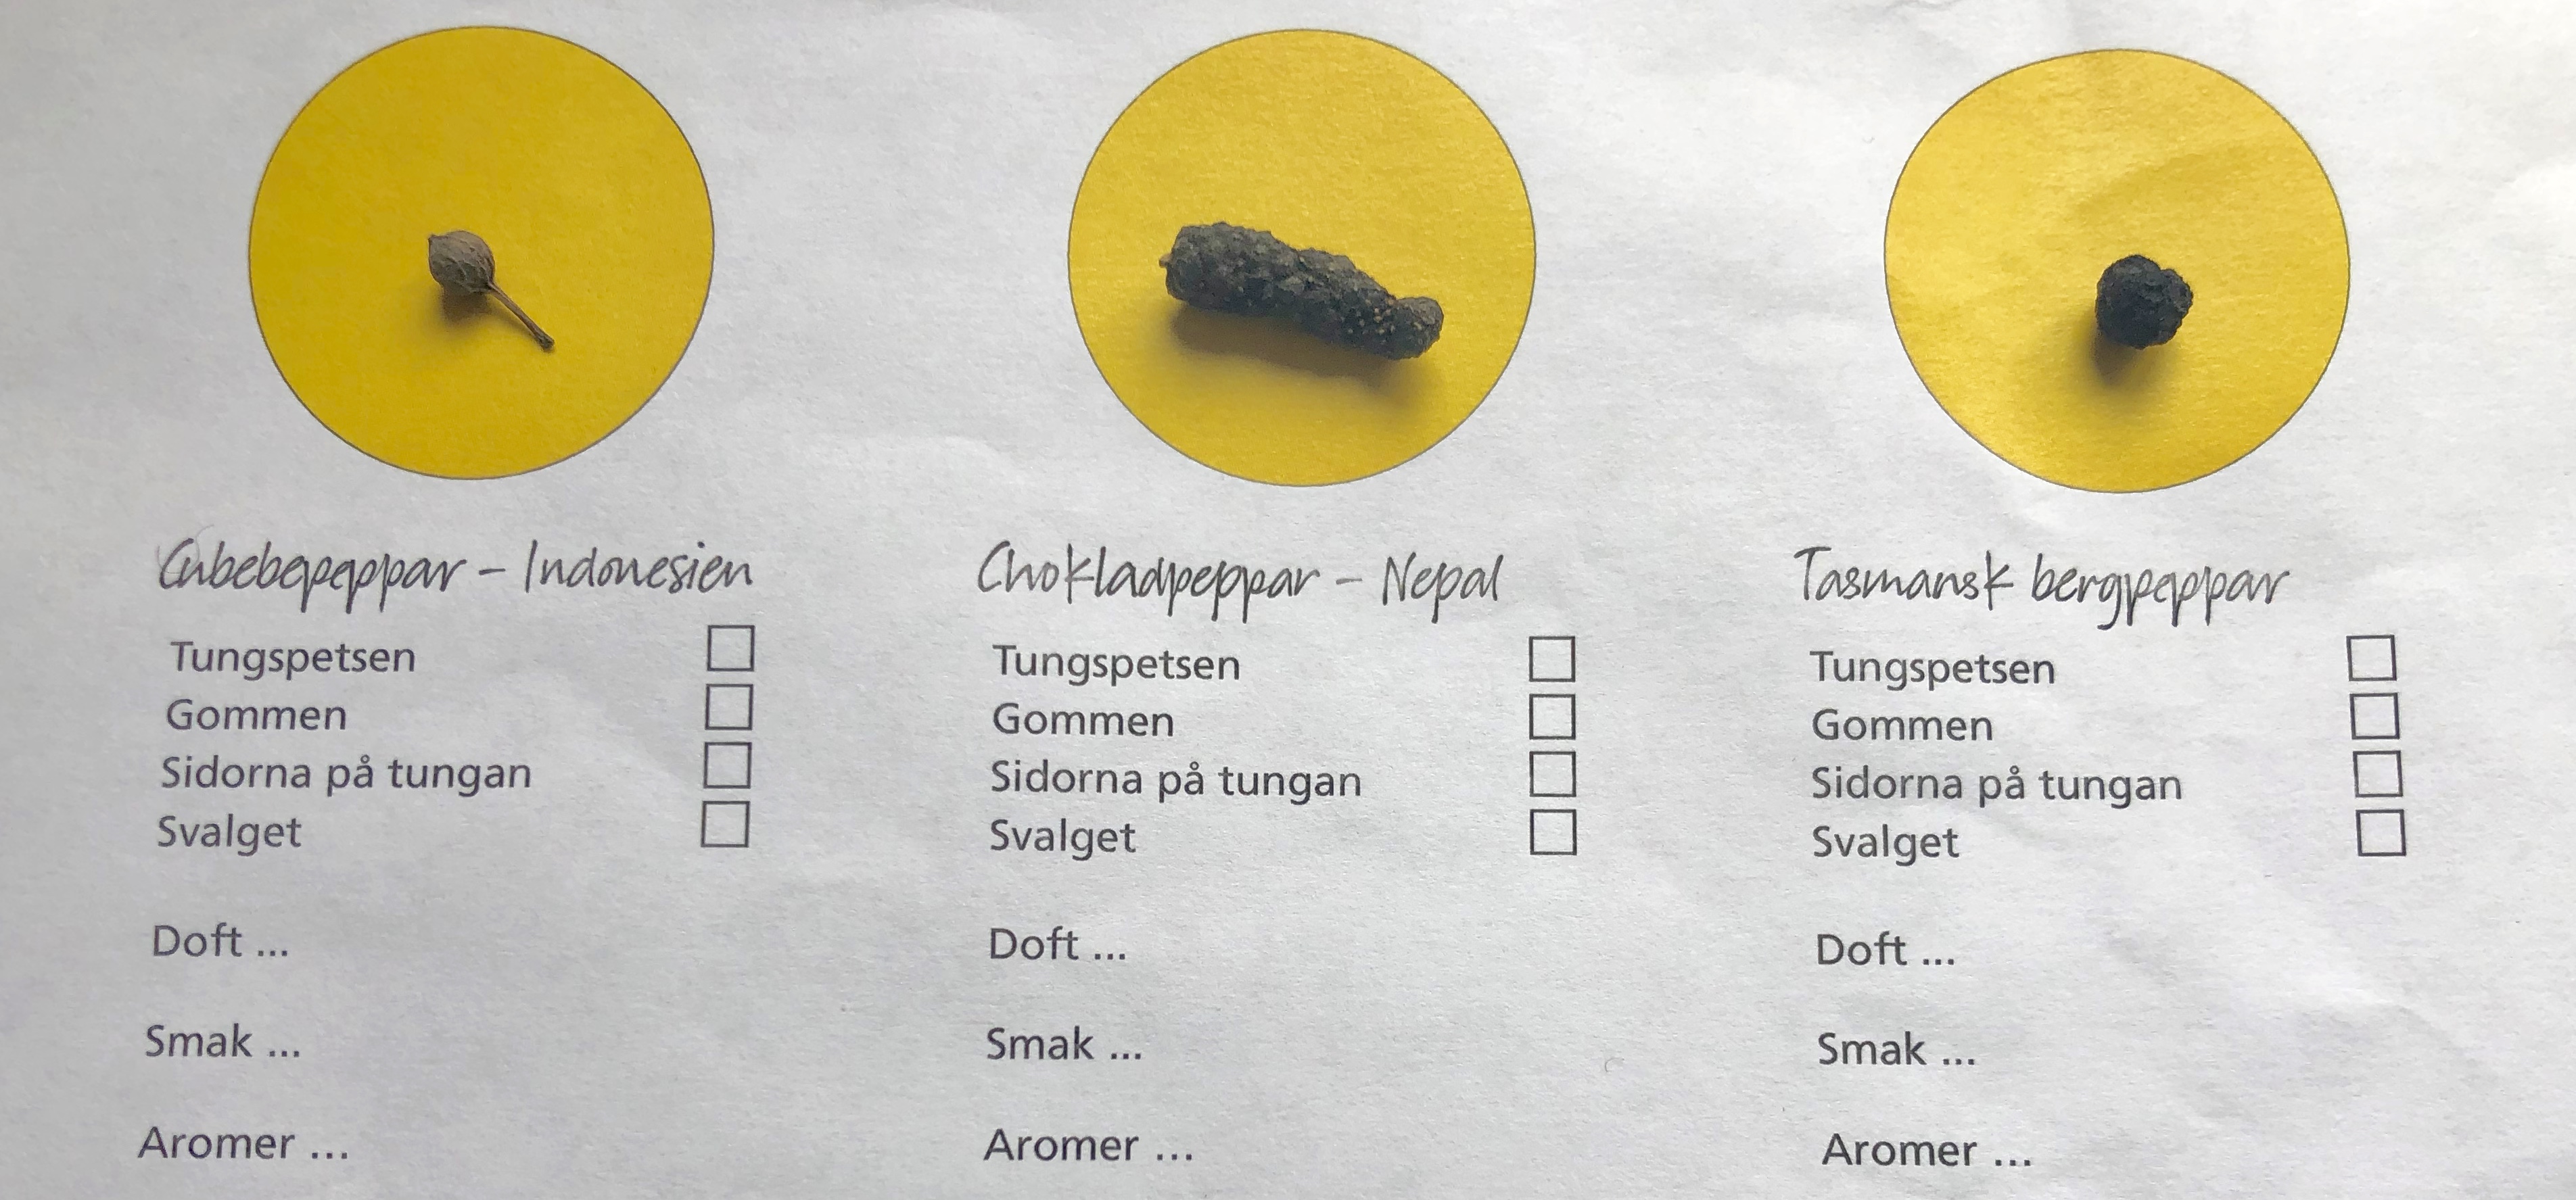 Cubebepeppar – Indonesien
Tungspetsen
Gommen
Sidorna på tungan
Svalget
Doft ...
Smak ...
Aromer ...
Chokladpeppar – Nepal
Tungspetsen
Gommen
Sidorna på tungan
Svalget
Doft ...
Smak ...
Aromer ...
Tasmansk bergpeppar
Tungspetsen
Gommen
Sidorna på tungan
Svalget
Doft ...
Smak ...
Aromer ...